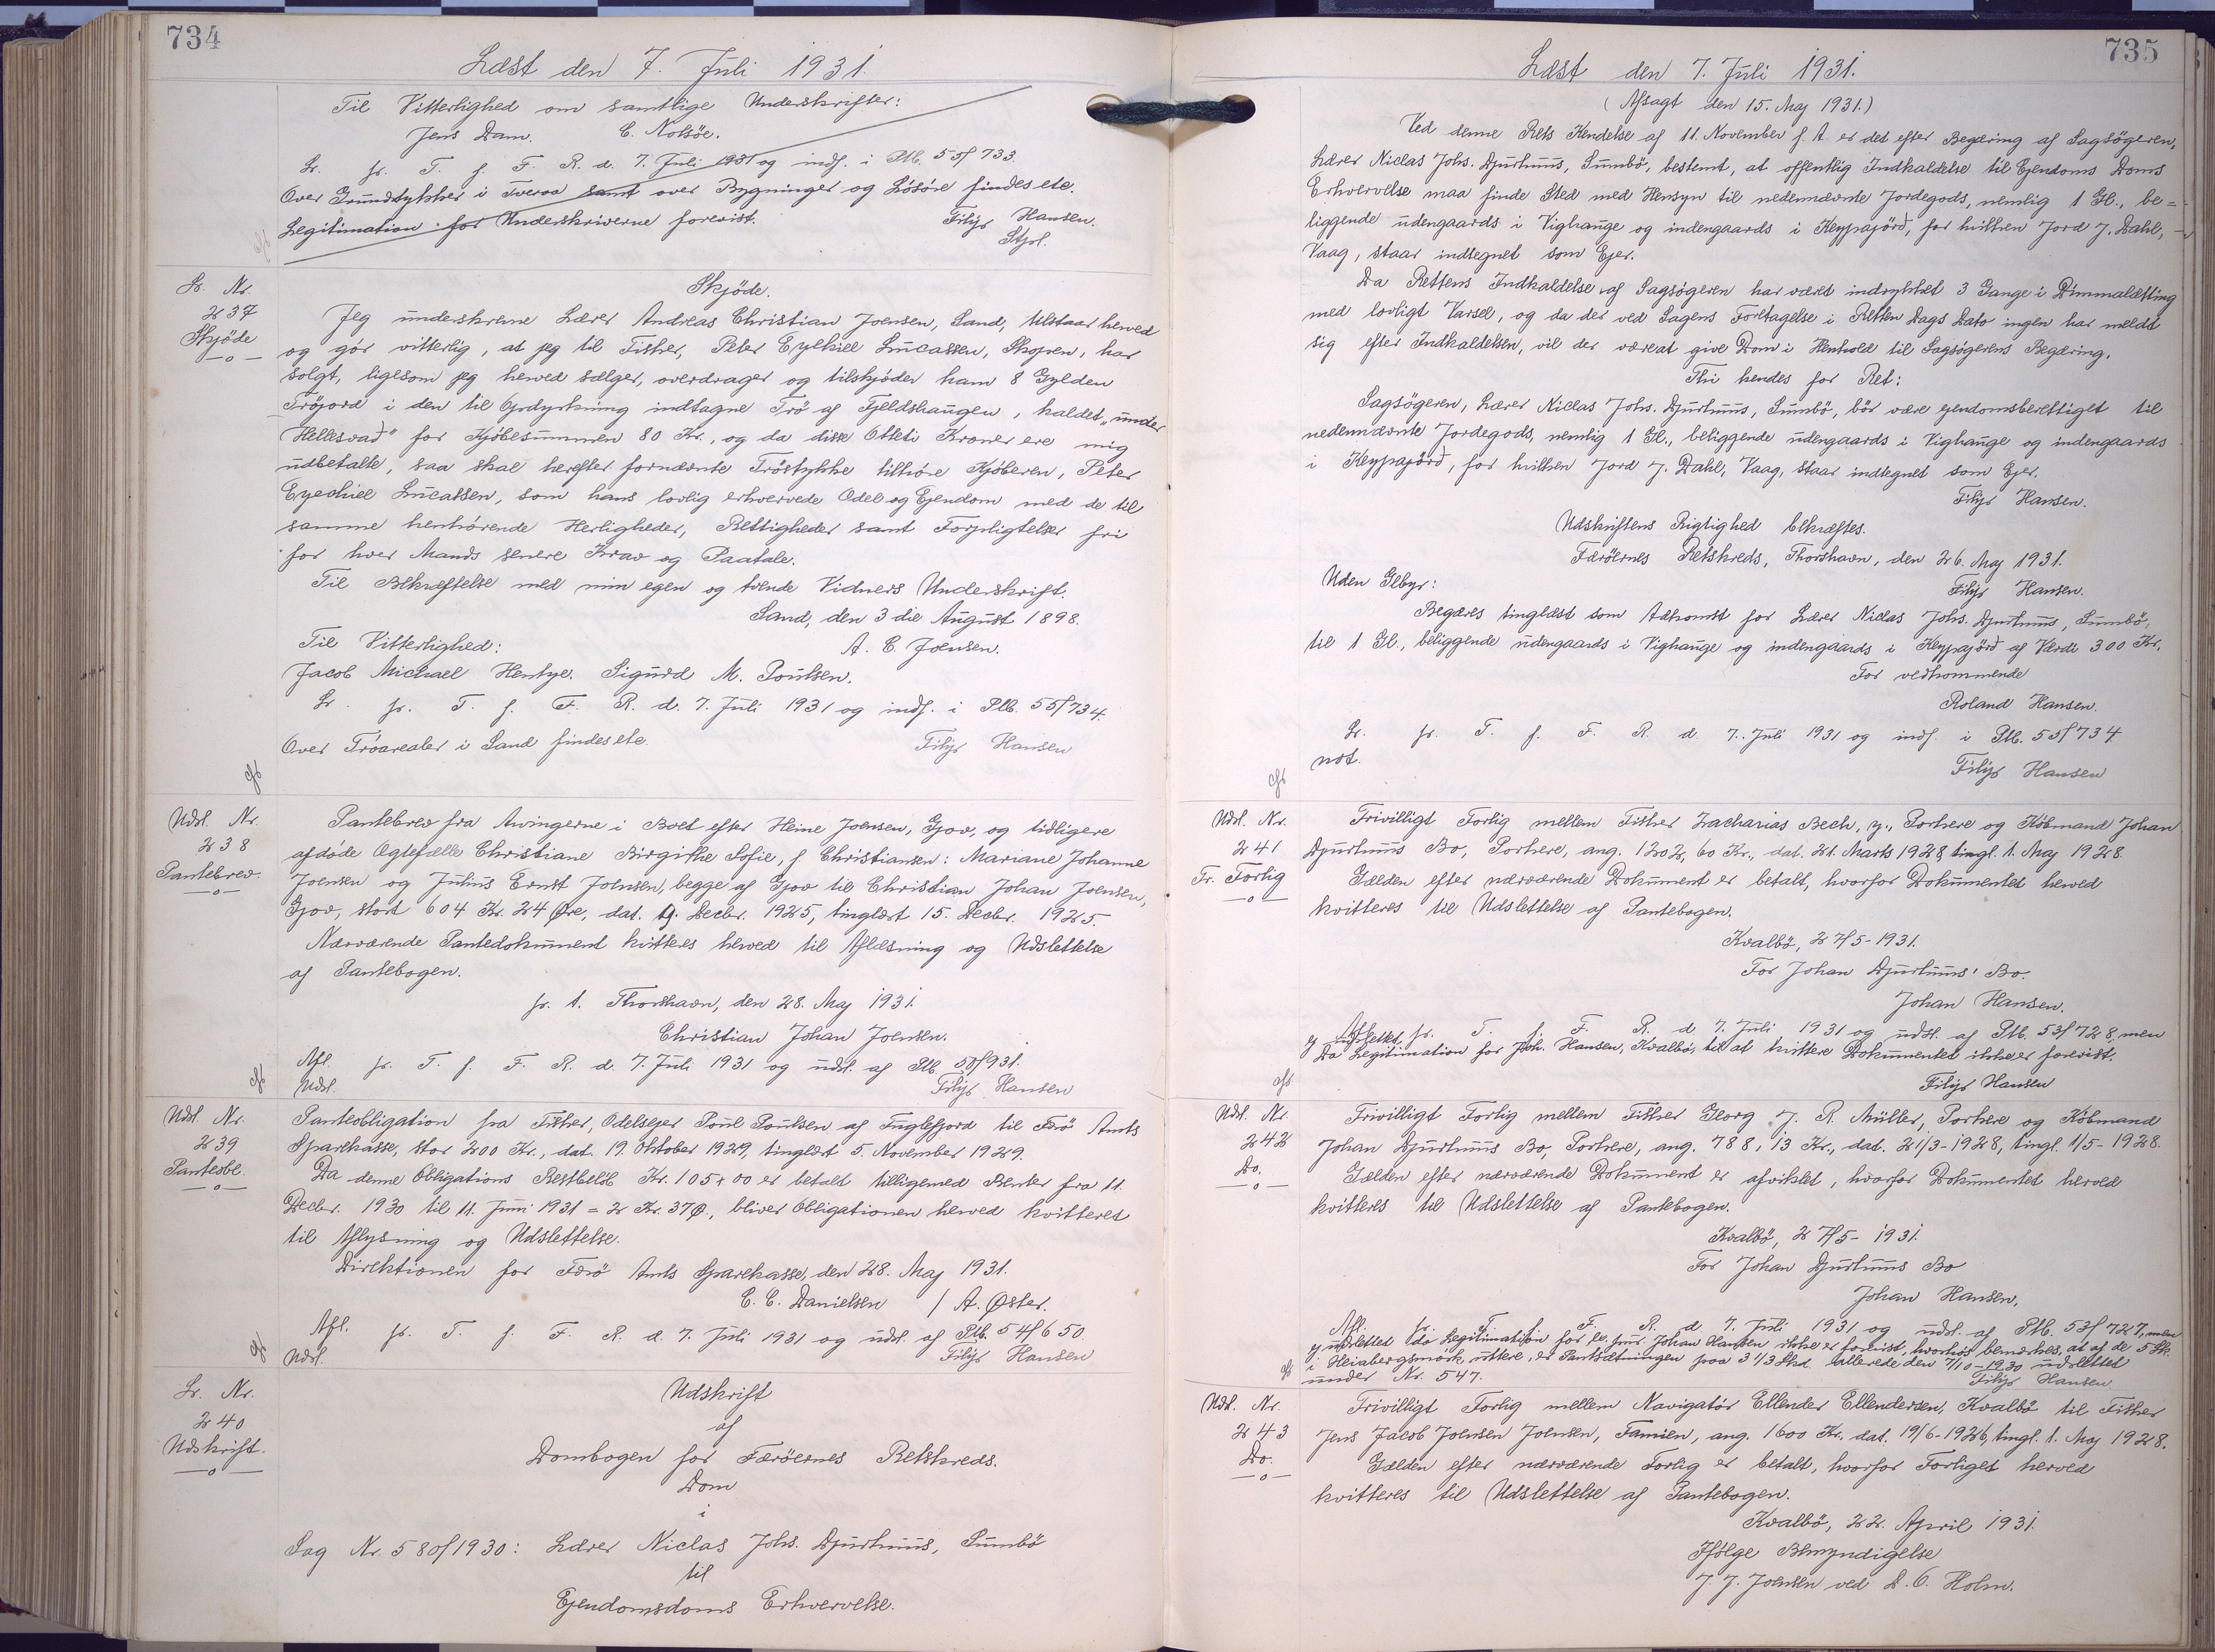 734
Læst den 7. Juli 1931.
Til Vitterlighed om samtlige Underskrifter:
Jens Dam. C. Nolsöe.
Lr. fr. T. f. F. R. d. 7. Juli 1931 og indf. i Ptb. 55/733.
Over Grundstykker i Tveraa samt over Bygninger og Lösöre findes etc.
Legitimation for Underskriverne forevist. Filip Hansen.
Stfr.
Lr. Nr.
237
Skjöde
Skjöde.
Jeg underskrevne Lærer Andreas Christian Joensen, Sand, tilstaar herved
og gör vitterlig, at jeg til Fisker, Peter Ezekiel Lucassen, Skopen, har
solgt, ligesom jeg herved sælger, overdrager og tilskjöder ham 8 Gylden
Tröjord i den til Opdyrkning indtagne Trö af Fjeldshaugen, kaldet "under
Hellesvad" for Kjöbesummen 80 Kr., og da disse Otteti Kroner ere mig
udbetalte, saa skal herefter fornævnte Tröstykke tilhöre Kjöberen, Peter
Ezechiel Lucassen, som hans lovlig erhvervede Odel og Ejendom med de til
samme henhörende Herligheder, Rettigheder samt Forpligtelser fri
for hver Mands senere Krav og Paatale.
Til Bekræftelse med min egen og tvende Vidners Underskrift.
Sand, den 3die August 1898.
Til Vitterlighed: A. C. Joensen.
Jacob Michael Hentze. Sigurd M. Poulsen.
Lr. fr. T. f. F. R. d. 7. Juli 1931 og indf. i Ptb. 55/734.
Over Tröarealer i Sand findes etc. Filip Hansen
Udsl. Nr.
238
Pantebrev.
Pantebrev fra Arvingerne i Boet efter Heine Joensen, Gjov, og tidligere
afdöde Ægtefælle Christiane Birgithe Sofie, f. Christiansen: Mariane Johanne
Joensen og Julius Ernst Joensen, begge af Gjov til Christian Johan Joensen,
Gjov, stort 604 Kr. 24 Øre, dat. 9. Decbr. 1925, tinglæst 15. Decbr. 1925.
Nærværende Pantedokument kvitteres herved til Aflæsning og Udslettelse
af Pantebogen.
p. t. Thorshavn, den 28. Maj 1931.
Christian Johan Joensen.
Afl. fr. T. f. F. R. d. 7. Juli 1931 og udsl. af Ptb. 50/931.
Udsl. Filip Hansen
Udsl. Nr.
239
Panteobl.
Panteobligation fra Fisker, Odelsejer Poul Poulsen af Fuglefjord til Færö Amts
Sparekasse, stor 200 Kr., dat. 19. Oktober 1929, tinglæst 5. November 1929.
Da denne Obligations Restbelöb Kr. 105,00 er betalt tilligemed Renter fra 11.
Decbr. 1930 til 11. Juni 1931 = 2 Kr. 37 Ø., bliver Obligationen herved kvitteret
til Aflysning og Udslettelse.
Direktionen for Færö Amts Sparekasse, den 28. Maj 1931.
C. C. Danielsen / A. Øster.
Afl. fr. T. f. F. R. d. 7. Juli 1931 og udsl. af Ptb. 54/650.
Udsl. Filip Hansen
Lr. Nr.
240
Udskrift.
Udskrift
af
Dombogen for Færöernes Retskreds.
Dom
i
Sag Nr. 580/1930: Lærer Niclas Johs. Djurhuus, Sumbö
til
Ejendomsdoms Erhvervelse.
735
Læst den 7. Juli 1931.
(Afsagt den 15. Maj 1931.)
Ved denne Rets Kendelse af 11. November f. A. er det efter Begæring af Sagsögeren,
Lærer Niclas Johs. Djurhuus, Sumbö, bestemt, at offentlig Indkaldelse til Ejendoms Doms
Erhvervelse maa finde Sted med Hensyn til nedennævnte Jordegods, nemlig 1 Gl., be=
liggende udengaards i Vighauge og indengaards i Keypajörd, for hvilken Jord J. Dahl,
Vaag, staar indtegnet som Ejer.
Da Rettens Indkaldelse af Sagsögeren har været indrykket 3 Gange i Dimmalætting
med lovligt Varsel, og da der ved Sagens Foretagelse i Retten Dags Dato ingen har meldt
sig efter Indkaldelsen, vil der være at give Dom i Henhold til Sagsögerens Begæring.
Thi kendes for Ret:
Sagsögeren, Lærer Niclas Johs. Djurhuus, Sumbö, bör være ejendomsberettiget til
nedennævnte Jordegods, nemlig 1 Gl., beliggende udengaards i Vighauge og indengaards
i Keypajörd, for hvilken Jord J. Dahl, Vaag, staar indtegnet som Ejer.
Filip Hansen.
Udskriftens Rigtighed bekræftes.
Færöernes Retskreds, Thorshavn, den 26. Maj 1931.
Uden Gebyr: Filip Hansen.
Begæres tinglæst som Adkomst for Lærer Niclas Johs. Djurhuus, Sumbö,
til 1 Gl., beliggende udengaards i Vighauge og indengaards i Keypajörd af Værdi 300 Kr.
For vedkommende
Roland Hansen.
Lr. fr. T. f. F. R. d. 7. Juli 1931 og indf. i Ptb. 55/734
not. Filip Hansen
Udsl. Nr.
241
Fr. Forlig
Frivilligt Forlig mellem Fisker Zacharias Bech, y., Porkere og Köbmand Johan
Djurhuus Bo, Porkere, ang. 1202,60 Kr., dat. 21. Marts 1928, tingl. 1. Maj 1928.
Gælden efter nærværende Dokument er betalt, hvorfor Dokumentet herved
kvitteres til Udslettelse af Pantebogen.
Kvalbö, 27/5-1931.
For Johan Djurhuus' Bo.
Johan Hansen.
Aflæst fr. T. f. F. R. d. 7. Juli 1931 og udsl. af Ptb. 53/728, men
ej udslettet
Da Legitimation for Joh. Hansen, Kvalbö, til at kvittere Dokumentet ikke er forevist.
Filip Hansen
Udsl. Nr.
242
Do.
Frivilligt Forlig mellem Fisker Georg J. R. Müller, Porkere og Köbmand
Johan Djurhuus Bo, Porkere, ang. 788,13 Kr., dat. 21/3-1928, tingl. 1/5-1928.
Gælden efter nærværende Dokument er afviklet, hvorfor Dokumentet herved
kvitteres til Udslettelse af Pantebogen.
Kvalbö, 27/5-1931.
For Johan Djurhuus Bo
Johan Hansen.
Afl. fr. T. f. F. R. d. 7. Juli 1931 og udsl. af Ptb. 53/727, men
ej udslettet da Legitimation for Johan Hansen ikke er forevist, hvorhos bemærkes, at af de 5 Sk.
i Heiabergsmörk yttere, er Pantsætningen paa 3 1/3 Skd. allerede den 7/10-1930 udslettet
under Nr. 547. Filip Hansen
Udsl. Nr.
243
Do.
Frivilligt Forlig mellem Navigatör Ellender Ellendersen, Kvalbö til Fisker
Jens Jacob Joensen Joensen, Famien, ang. 1600 Kr. dat. 19/6-1926, tingl. 1. Maj 1928.
Gælden efter nærværende Forlig er betalt, hvorfor Forliget herved
kvitteres til Udslettelse af Pantebogen.
Kvalbö, 22. April 1931.
Ifölge Bemyndigelse
J. J. Joensen ved D. O. Holm.